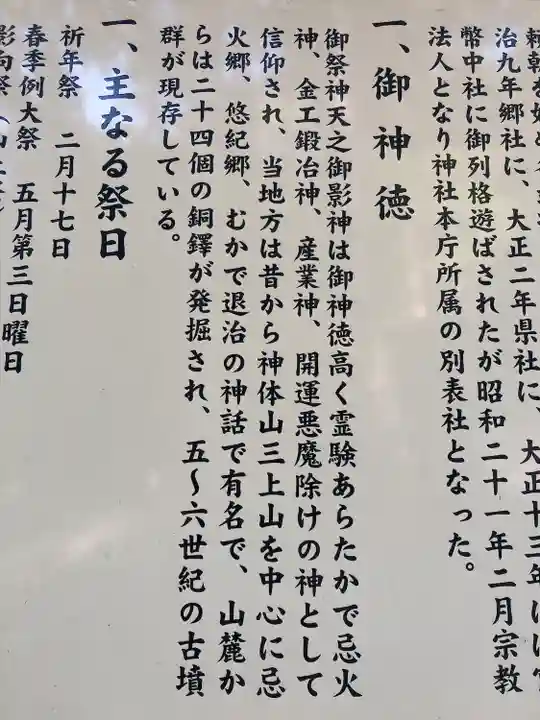 治九年郷社に、大正二年県社に、大正十三年
幣中社に御列格遊ばされたが昭和二十一年二月宗教
法人となり神社本庁所属の別表社となった。
一、御神徳
御祭神天之御影神は御神徳高く霊験あらたかで忌火
神、金工鍛冶神、産業神、開運悪魔除けの神として
信仰され、当地方は昔から神体山三上山を中心に忌
火郷、悠紀郷、むかで退治の神話で有名で、山麓か
らは二十四個の銅鐸が発掘され、五〜六世紀の古墳
群が現存している。
一、主なる祭日
祈年祭 二月十七日
春季例大祭 五月第三日曜日